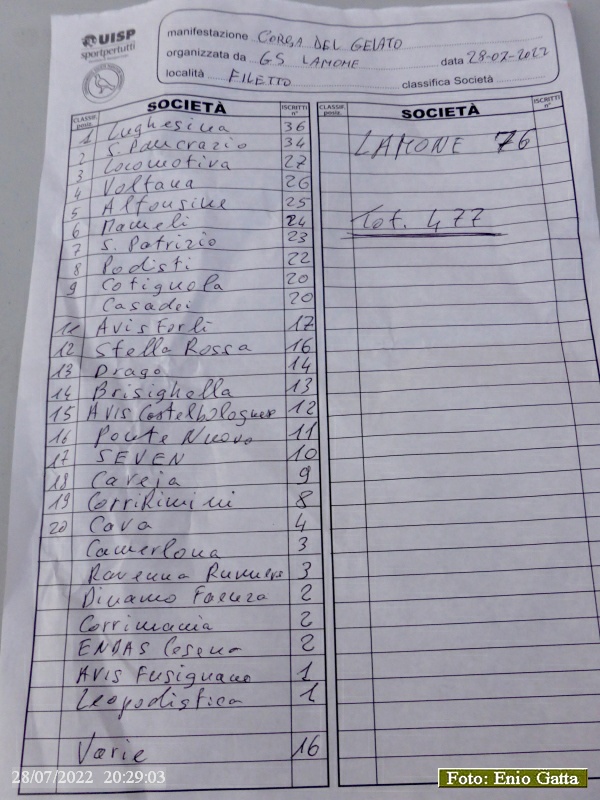 UISP
sportpertutti
manifestazione CORSA DEL GELATO
organizzata da GS LAMONE data 28-07-2022
località FILETTO classifica Società
CLASSIF. posiz. SOCIETÀ ISCRITTI n°
1 Lughesina 36
2 S. Pancrazio 34
3 Locomotiva 27
4 Voltana 26
5 Alfonsine 25
6 Mameli 24
7 S. Patrizio 23
8 Podisti 22
9 Cotignola 20
Casadei 20
11 Avis Forlì 17
12 Stella Rossa 16
13 Drago 14
14 Brisighella 13
15 Avis Castelbolognese 12
16 Ponte Nuovo 11
17 SEVEN 10
18 Caveja 9
19 CorriRimini 8
20 Cava 4
Camerlona 3
Ravenna Runners 3
Dinamo Faenza 2
Corrimania 2
ENDAS Cesena 2
AVIS Fusignano 1
Leopodistica 1
Varie 16
CLASSIF. posiz. SOCIETÀ ISCRITTI n°
LAMONE 76
Tot. 477
28/07/2022 20:29:03
Foto: Enio Gatta